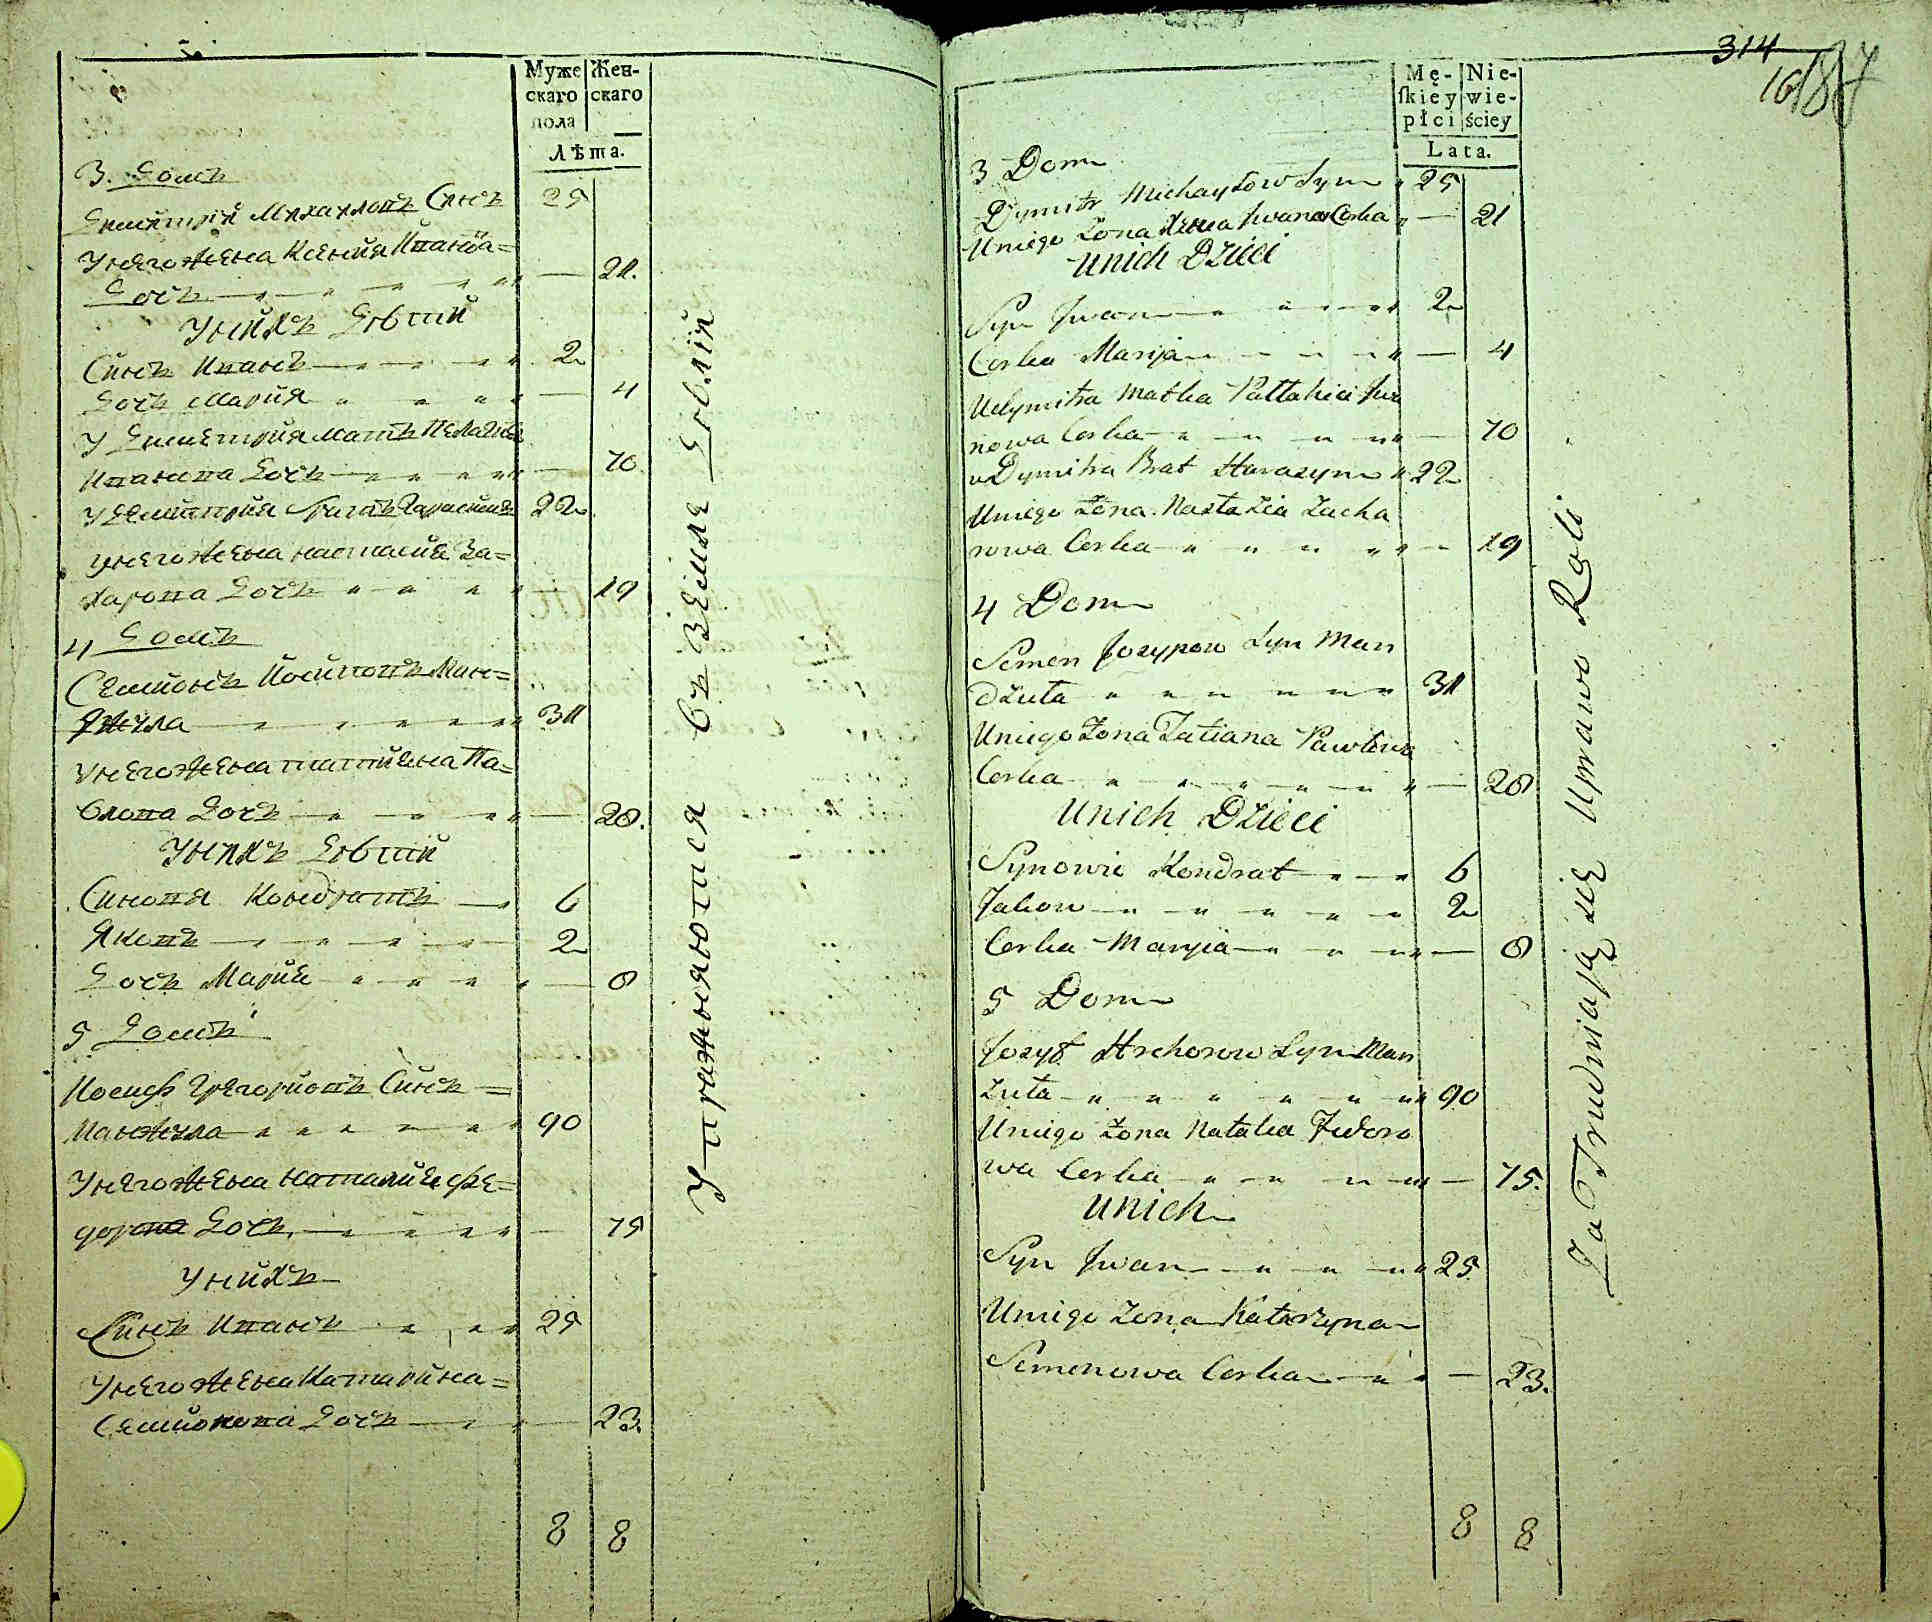 Муже Жен-
скаго скаго
пола
Лѣта.
3. Домъ
Димитрій Михаиловъ Синъ 25
Унего жена Ксенія Иванова=
Дочь 21.
Унихъ Дѣти
Синъ Иванъ 2
Дочь Марія 4
У Димитрія мать Пелагия
Иванова Дочь 70.
У Димитрія братъ Гарасимъ 22
унего жена настасия За=
харова Дочь 19
4 Домъ
Семионъ Иосиповъ Ман=
джула 31
Унего жена татияна Па=
влова Дочь 28.
Унихъ Дѣти
Синовя Кондратъ 6
Яковъ 2
Дочь Мария 8
5 Домъ
Иосиф Григориовъ Синъ=
Манжула 90
Унего жена наталия Фе=
дорова Дочь 75
Унихъ
Синъ Иванъ 25
Унего жена Катарина=
Семионова Дочь 23.
8 8
Упражняются въ Земле Делія
314
16 187
Mę- Nie-
ſkiey wie-
płci ściey
Lata.
3 Dom
Dymitr Michayłow Syn 25
Uniego Zona Xenia Iwanow Corka 21
Unich Dzieci
Syn Iwan 2
Corka Marija 4
Udymitra Matka Pallahia Iwa
nowa Corka 70
u Dymitra Brat Harasym 22
Uniego Zona Nastazia Zacha
rowa Corka 19
4 Dom
Semen Jozypow Syn Man
dzuła 31
Uniego Zona Tatiana Pawłowa
Corka 28
Unich Dzieci
Synowie Kondrat 6
Jakow 2
Corka Maryia 8
5 Dom
Jozyf Hrehorow Syn Man
zuła 90
Uniego Zona Natalia Fedoro
wa Corka 75.
Unich
Syn Iwan 25
Uniego Zona Katarzyna
Semenowa Corka 23.
8 8
ZaTrudniają się Uprawo Roli